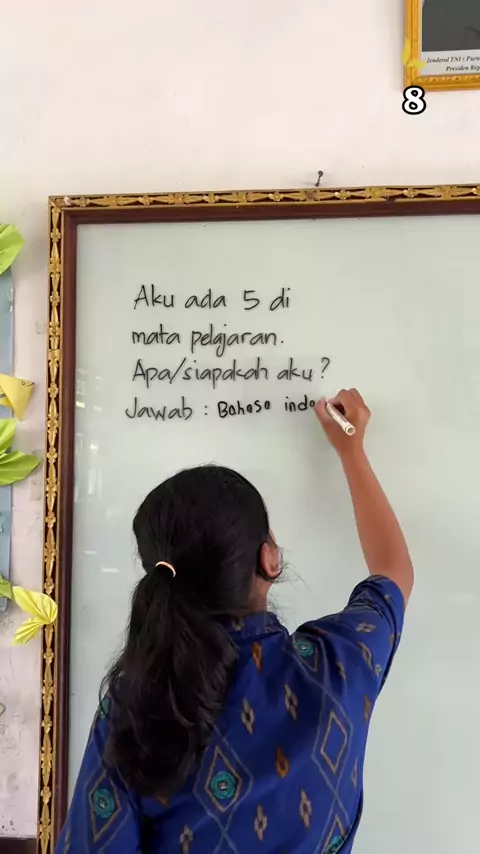 Jenderal TNI ( Purn
Presiden Rep
8
Aku ada 5 di
mata pelajaran.
Apa/siapakah aku ?
Jawab : Bahasa indo